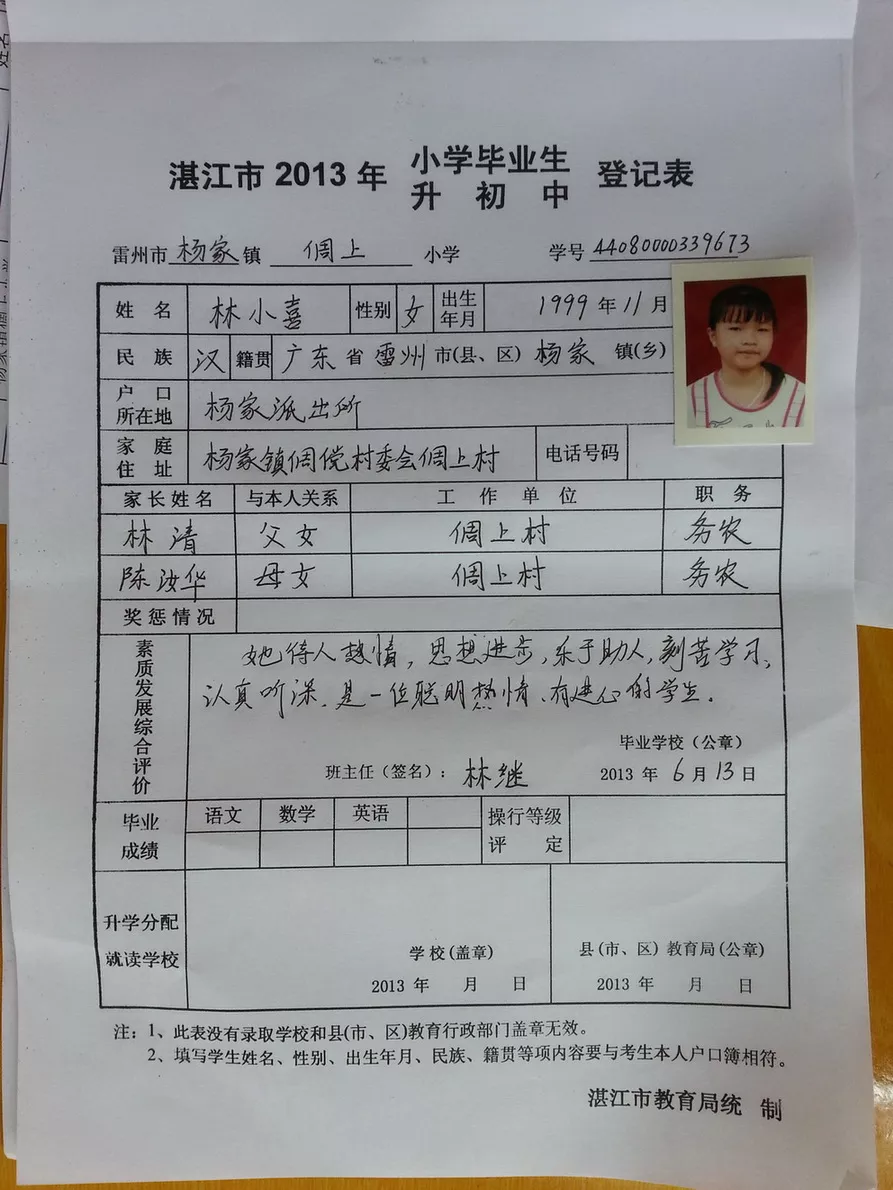 湛江市 2013 年 小学毕业生 登记表
升 初 中
雷州市 杨家 镇 倜上 小学 学号 44080000339673
姓 名 林小喜 性别 女 出生年月 1999 年 11 月
民 族 汉 籍贯 广东 省 雷州 市(县、区) 杨家 镇(乡)
户 口 所在地 杨家派出所
家 庭 住 址 杨家镇倜傥村委会倜上村 电话号码
家长姓名 与本人关系 工 作 单 位 职 务
林清 父女 倜上村 务农
陈汝华 母女 倜上村 务农
奖惩情况
素质发展综合评价
她待人热情，思想进步，乐于助人，刻苦学习、
认真听课，是一位聪明热情、有进心的学生。
毕业学校（公章）
班主任（签名）： 林继 2013 年 6 月 13 日
毕业成绩 语文 数学 英语 操行等级评 定
升学分配
就读学校
学校(盖章) 县(市、区)教育局(公章)
2013 年 月 日 2013 年 月 日
注：1、此表没有录取学校和县(市、区)教育行政部门盖章无效。
2、填写学生姓名、性别、出生年月、民族、籍贯等项内容要与考生本人户口簿相符。
湛江市教育局统 制